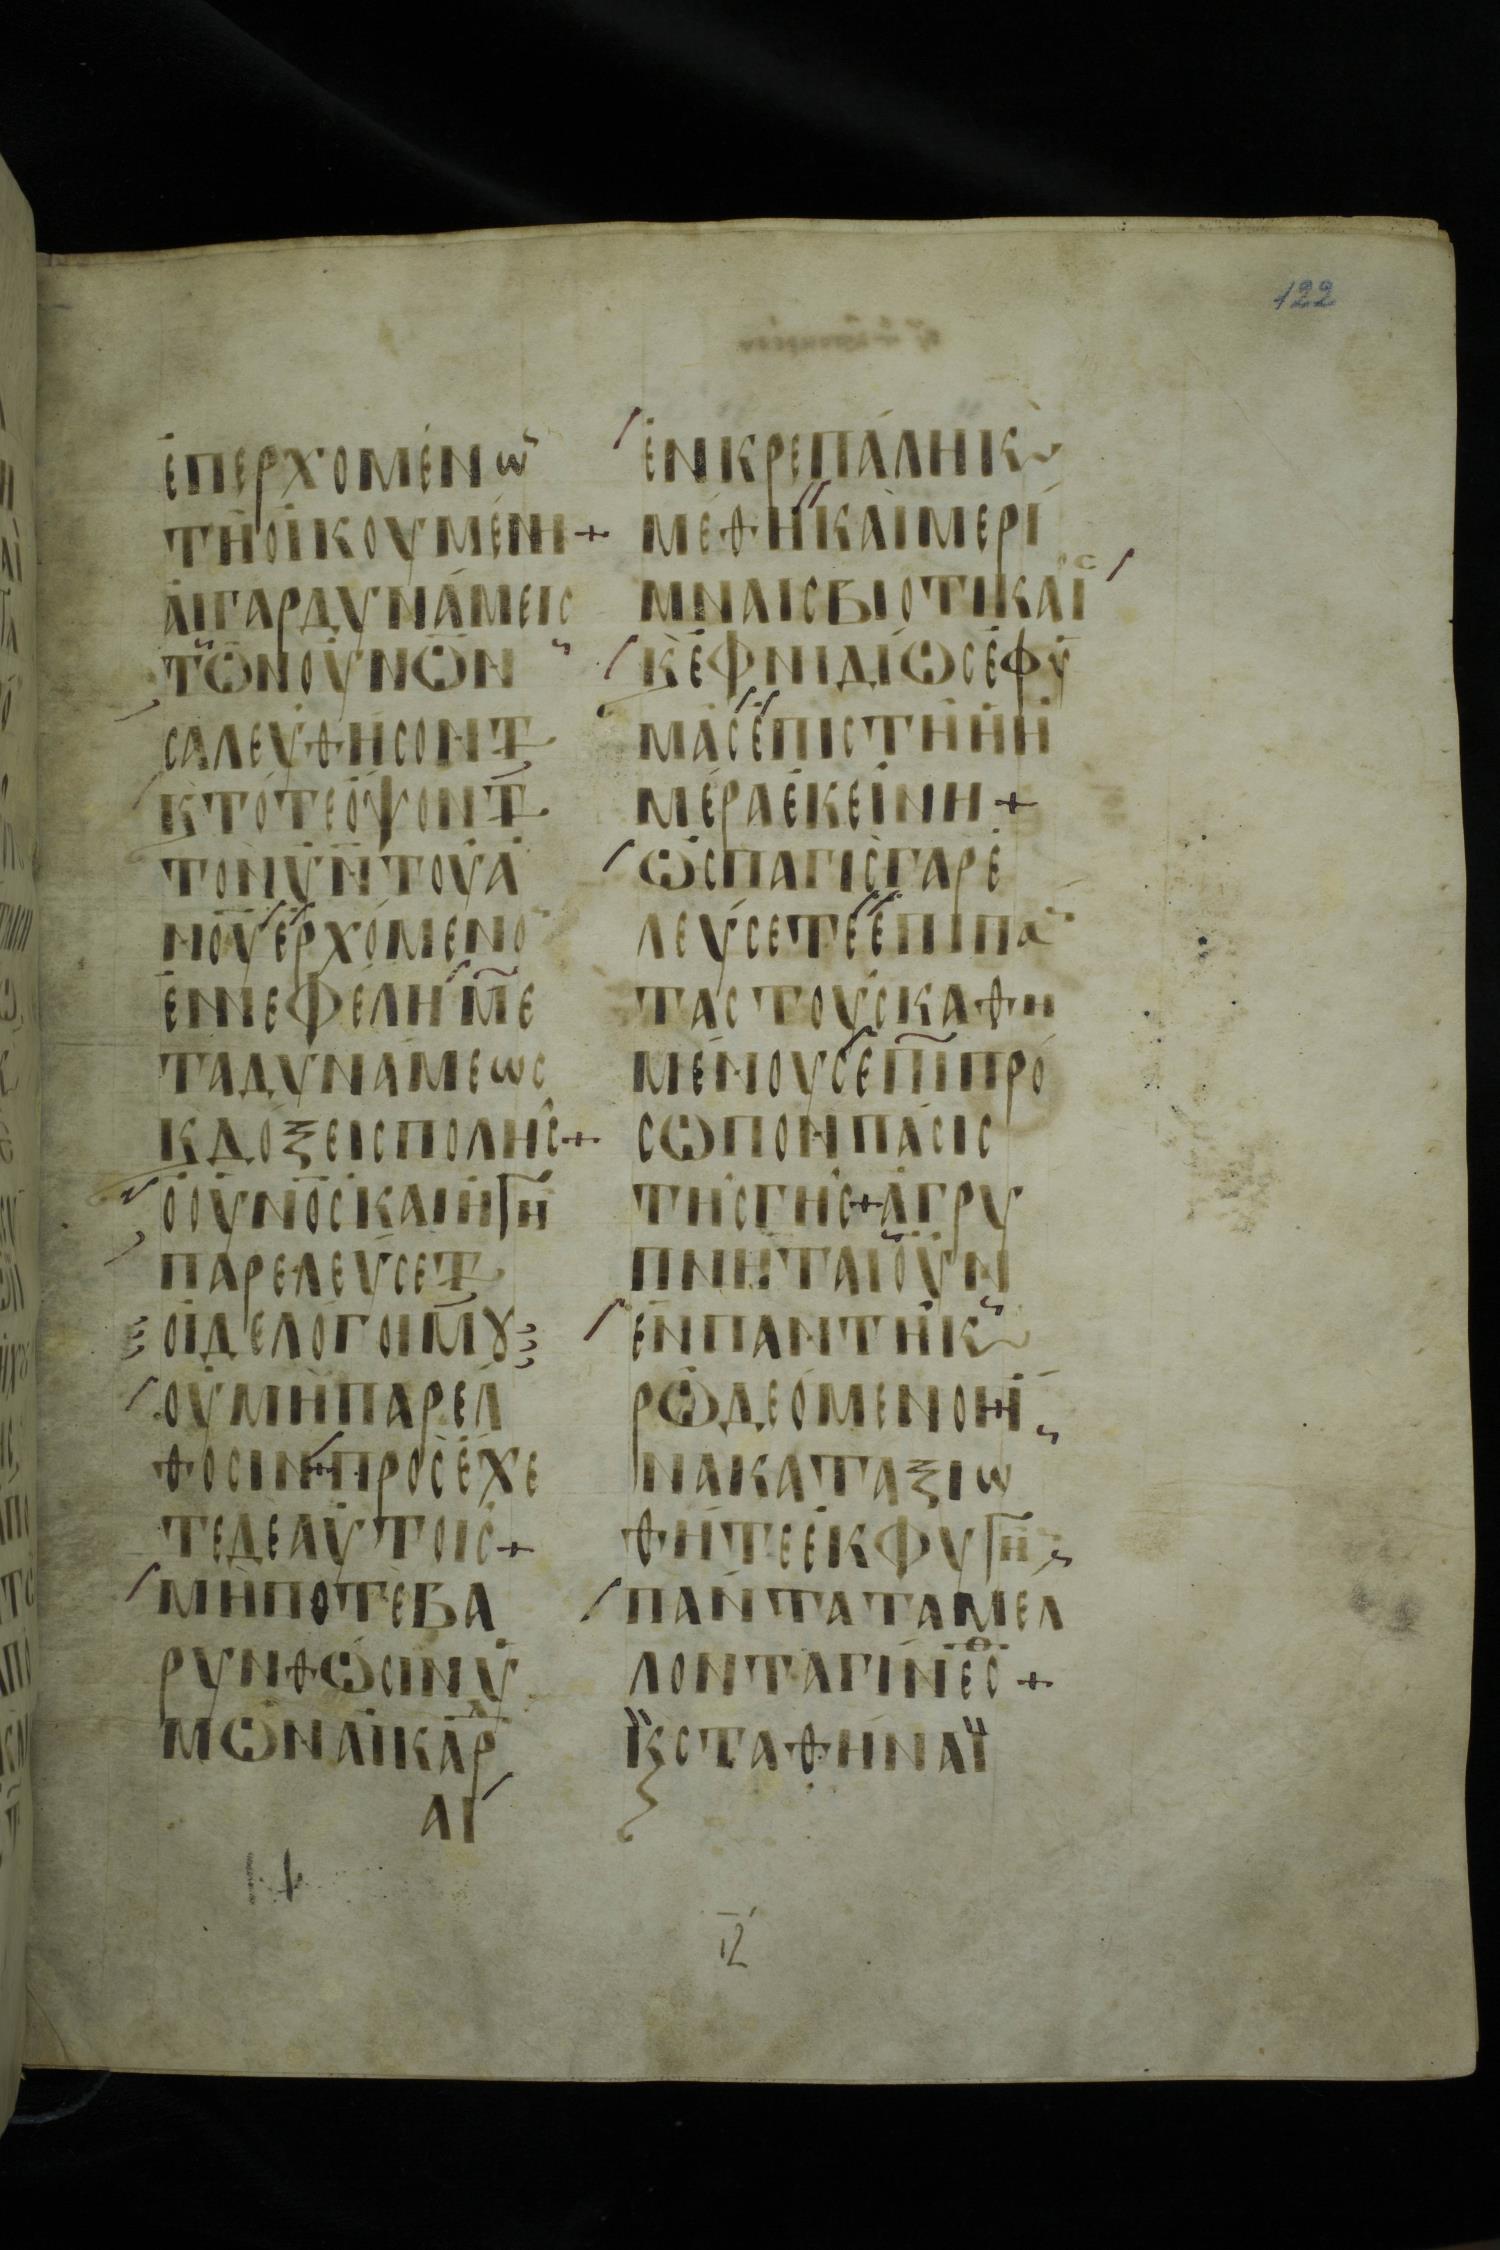 122
ἐπερχομένω̄
τῆ οἰκουμένη +
αἱ γὰρ δυνάμεις
τῶν οὐνῶν
σαλευθήσοντ
κ τότε ὄψοντ
τὸν ὑν τοῦ ἀ
νοῦ ἐρχόμενο
ἐν νεφέλη με
τὰ δυνάμεως
κ δόξεις πολῆς +
ὁ οὐνος καὶ ἡ γῆ
παρελεύσετ
οἱ δὲ λόγοι μȣ
οὐ μὴ παρέλ
θοσιν + προσέχε
τε δὲ αὑτοῖς +
μήποτε βα
ρυνθῶσιν ὑ
μῶν αἱ καρ
αι
ἐν κρεπάλη κ
μέθη καὶ μερί
μναις βιοτικαῖς
κ ἐφνιδίως ἐφ ὑ
μὰς ἐπιστῆ ἡ ἡ
μέρα ἐκείνη +
ὡς παγὶς γὰρ ἐ
λεύσετε ἐπὶ πα
τας τοὺς καθη
μένους ἐπὶ πρό
σωπον πάσις
τῆς γῆς + ἀγρυ
πνῆται οὖν
ἐν παντὴ κ
ρῶ δεόμενοι ἵ
να καταξιω
θῆτε ἐκφυγῆ
πάντα τὰ μέλ
λοντα γίνεσθ +
κ σταθῆναϊ
ιζ